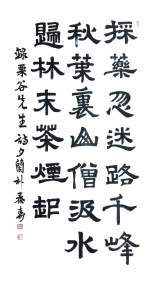 採藥忽迷路千峰
秋葉裏山僧汲水
歸林末茶煙起
錄栗谷先生詩夕蘭朴